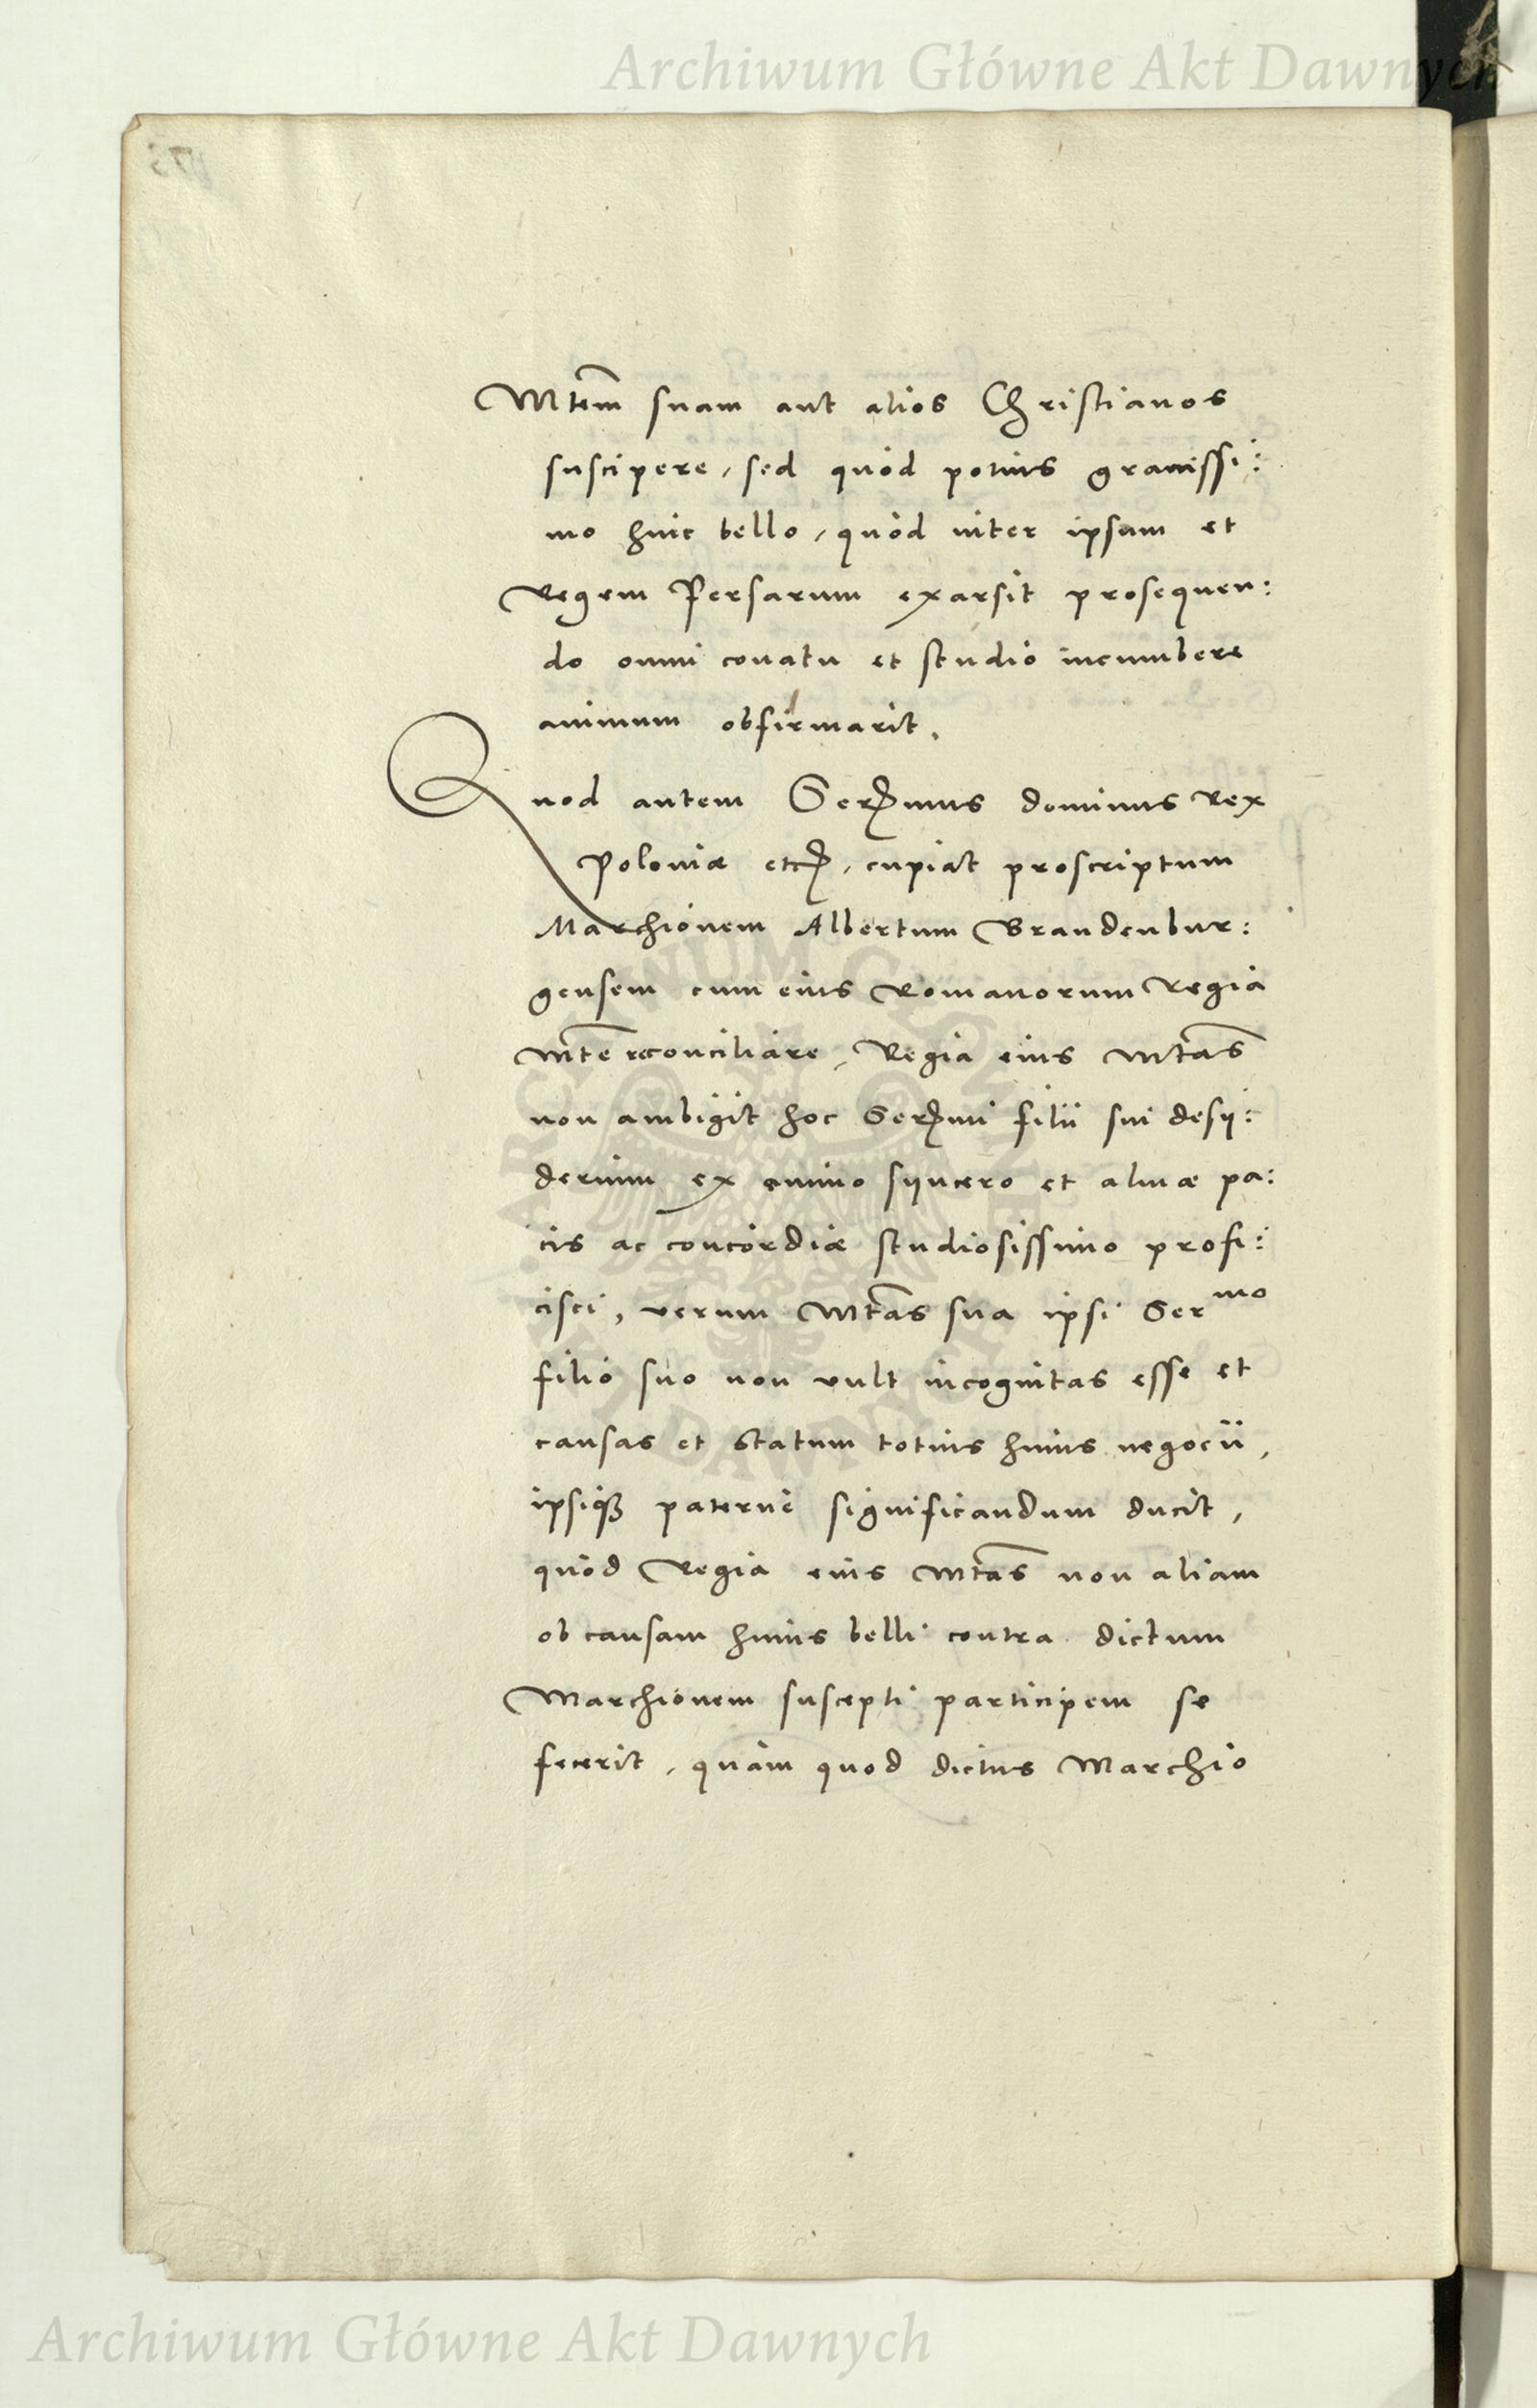 Archiwum Główne Akt Dawnych
Mtem suam aut alios Christianos
suscipere, sed quòd potius grauissi:
mo huic bello, quòd inter ipsam et
Regem Persarum exarsit prosequen:
do omni conatu et studio incumbere
animum obfirmarit.
Quod autem Sermus dominus Rex
Poloniæ etc, cupiat proscriptum
Marchionem Albertum Brandenbur:
gensem cum eius Romanorum Regia
Mte reconciliare, Regia eius Mtas
non ambigit hoc Sermi filii sui desy:
derium ex animo syncero et almæ pa:
cis ac concordiæ studiosissimo profi:
cisci, verum Mtas sua ipsi Sermo
filio suo non vult incognitas esse et
causas et statum totius huius negocii,
ipsiq3 paternè significandum ducit,
quòd Regia eius Mtas non aliam
ob causam huius belli contra dictum
Marchionem suscepti participem se
fecerit, quàm quod dictus Marchio
Archiwum Główne Akt Dawnych